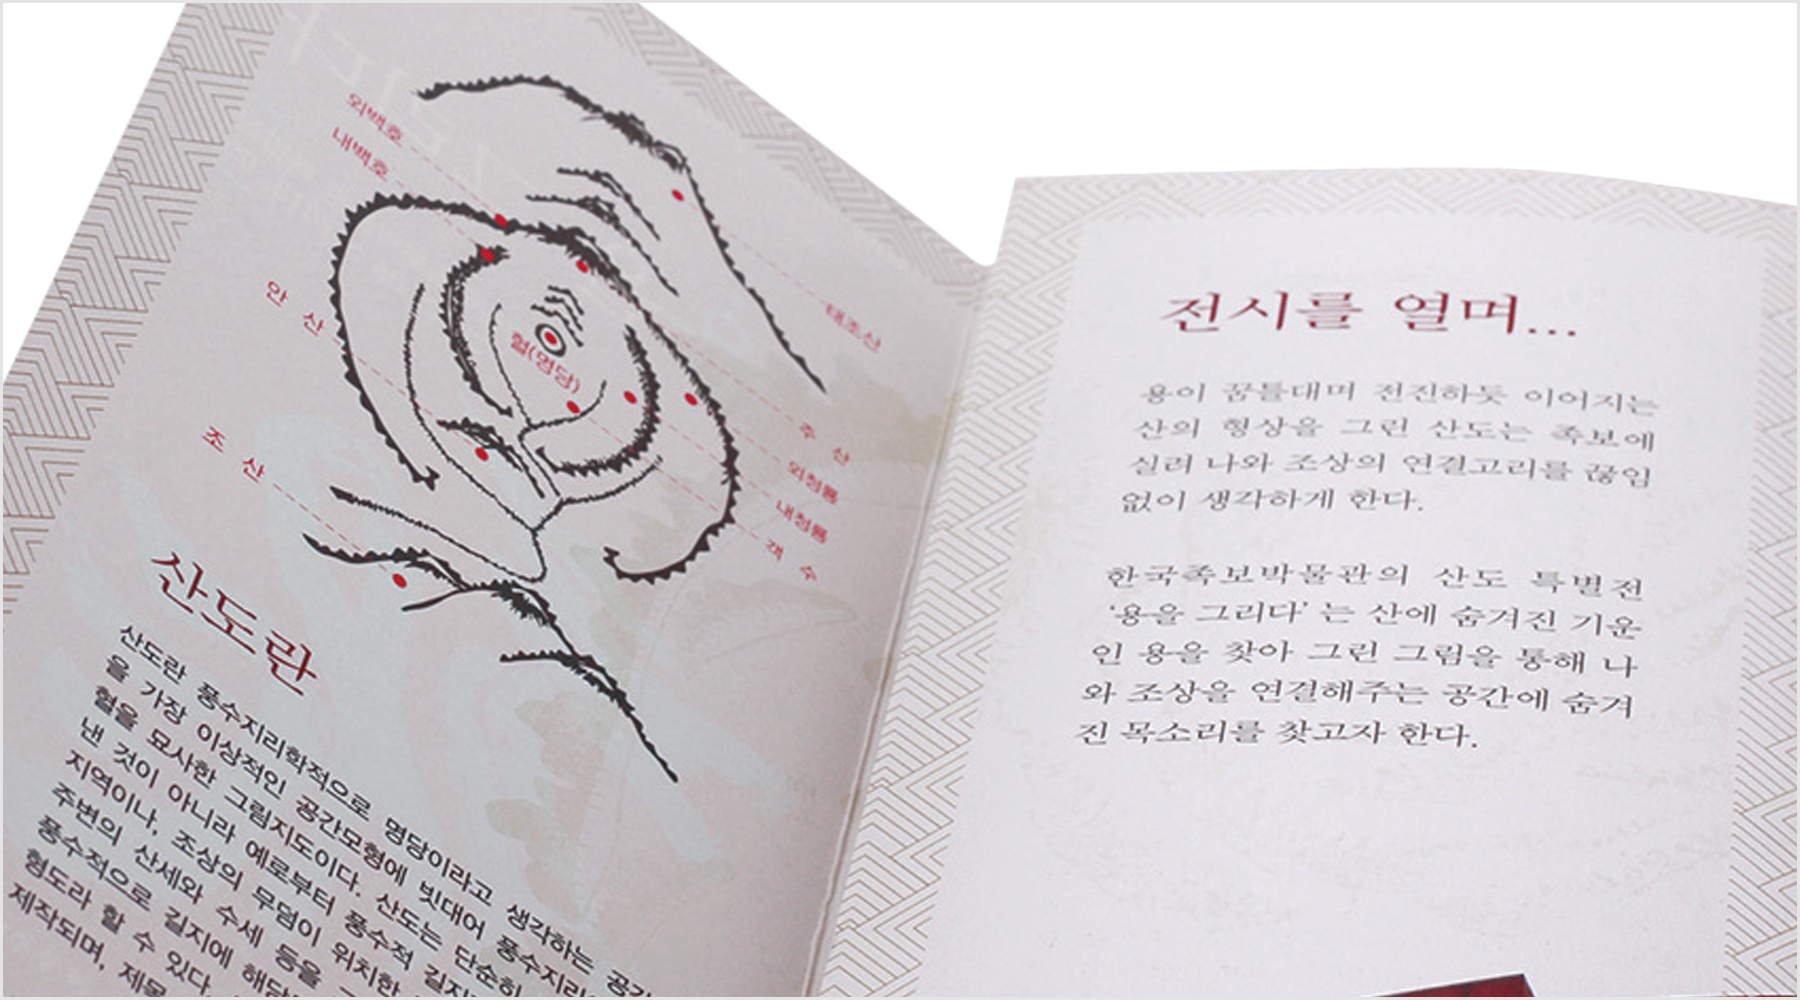 외백호
내백호
안 산
조 산
혈(명당)
태조산
주 산
외청룡
내청룡
객 수
산도란
산도란 풍수지리학적으로 명당이라고 생각하는 공간
을 가장 이상적인 공간모형에 빗대어 풍수지리
혈을 묘사한 그림지도이다. 산도는 단순히
낸 것이 아니라 예로부터 풍수적
지역이나, 조상의 무덤이 위치한
주변의 산세와 수세 등을
풍수적으로 길지에
형도라 할 수 있다.
제작되며,
전시를 열며...
용이 꿈틀대며 전진하듯 이어지는
산의 형상을 그린 산도는 족보에
실려 나와 조상의 연결고리를 끊임
없이 생각하게 한다.
한국족보박물관의 산도 특별전
‘용을 그리다’ 는 산에 숨겨진 기운
인 용을 찾아 그린 그림을 통해 나
와 조상을 연결해주는 공간에 숨겨
진 목소리를 찾고자 한다.